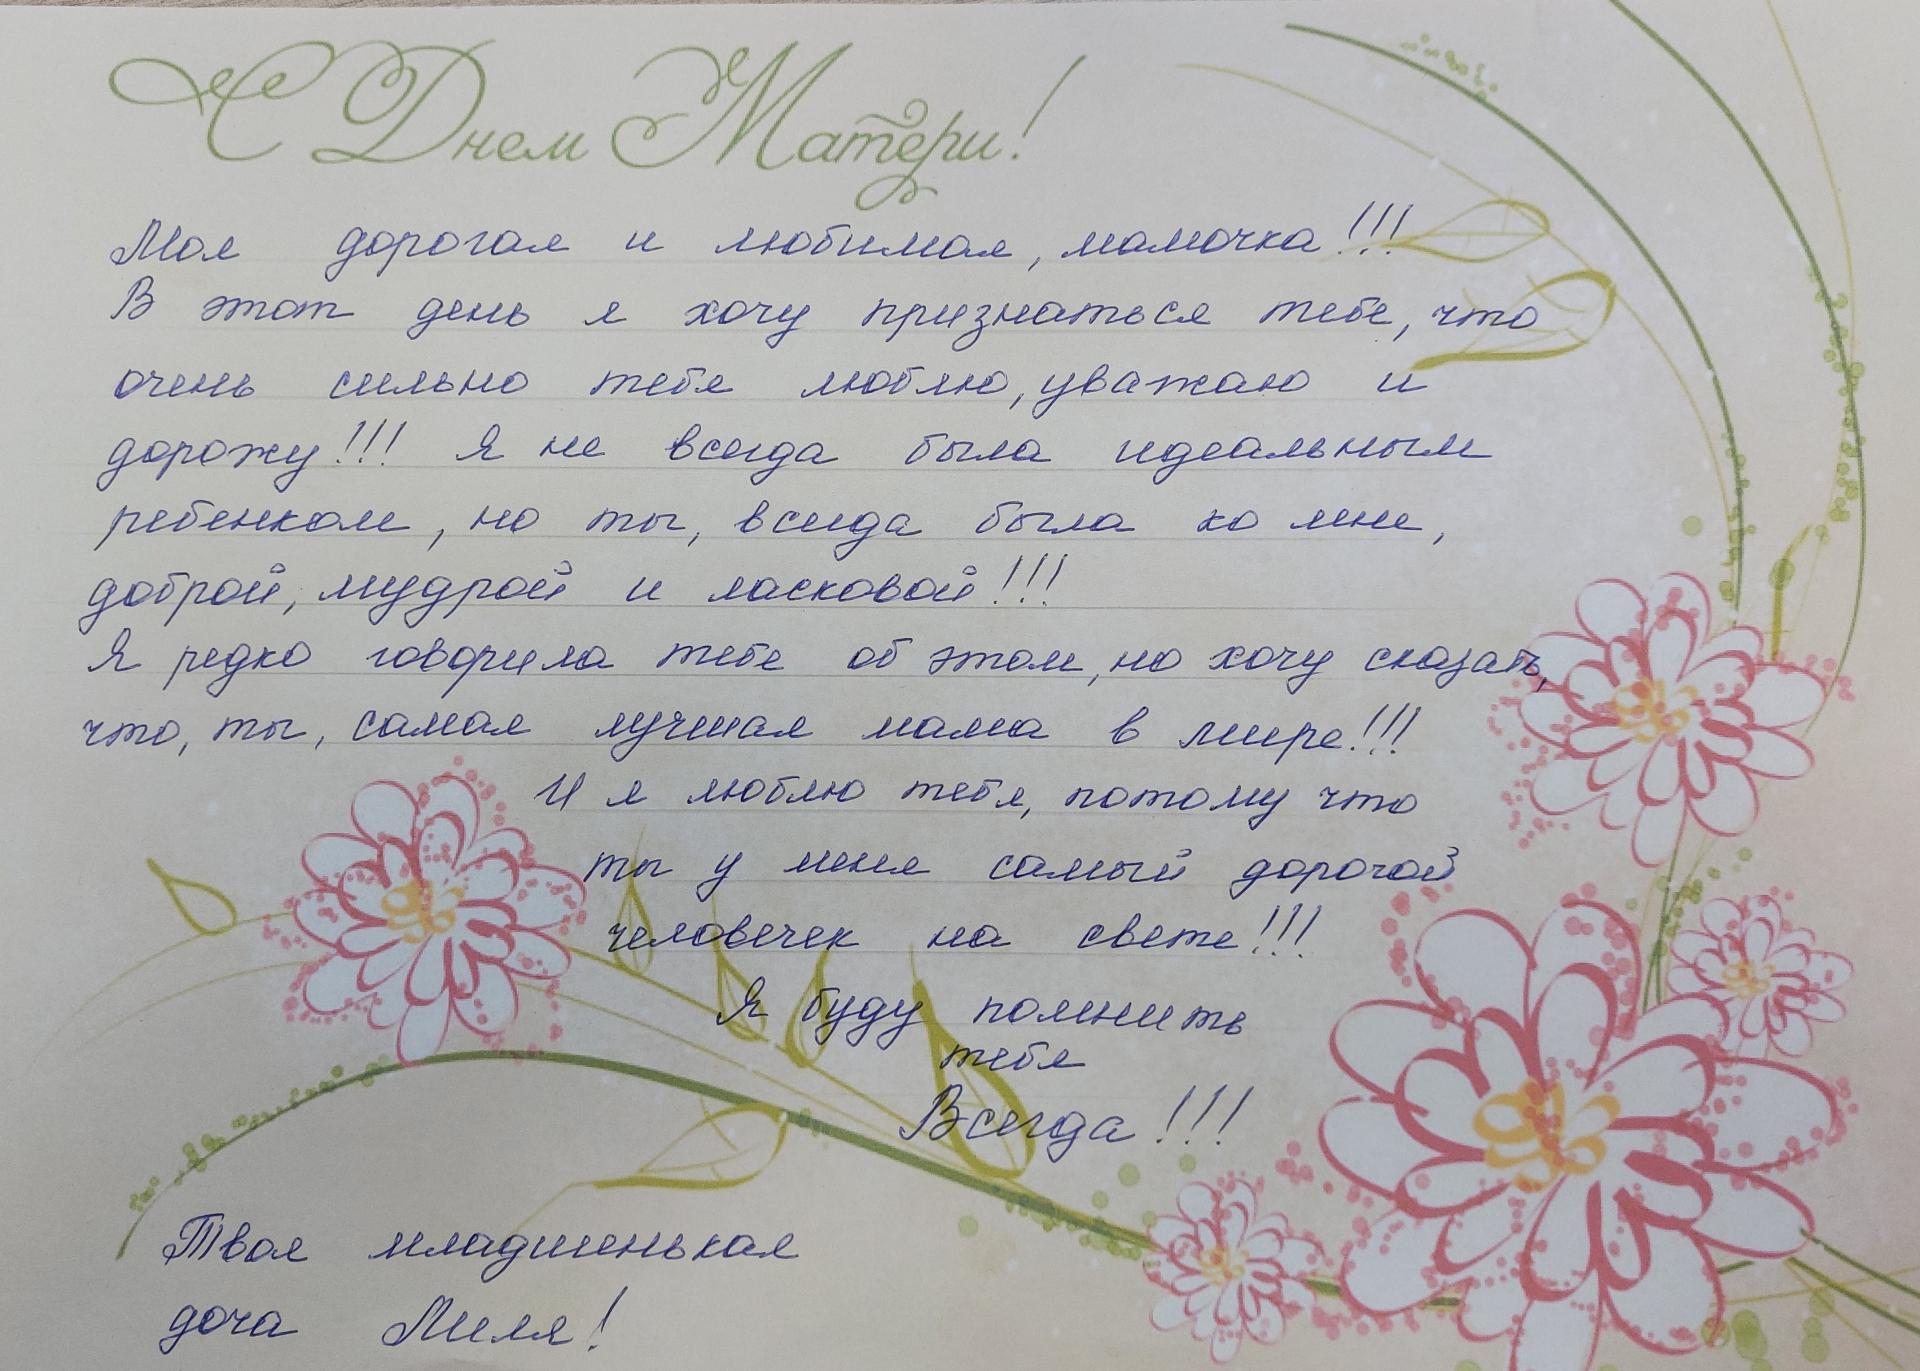 С Днем Матери!
Моя дорогая и любимая, мамочка!!!
В этот день я хочу признаться тебе, что
очень сильно тебя люблю, уважаю и
дорожу!!! Я не всегда была идеальным
ребенком, но ты, всегда была ко мне,
доброй, мудрой и ласковой!!!
Я редко говорила тебе об этом, но хочу сказать,
что, ты, самая лучшая мама в мире!!!
И я люблю тебя, потому что
ты у меня самый дорогой
человечек на свете!!!
Я буду помнить
тебя
Всегда!!!
Твоя младшенькая
доча Миля!